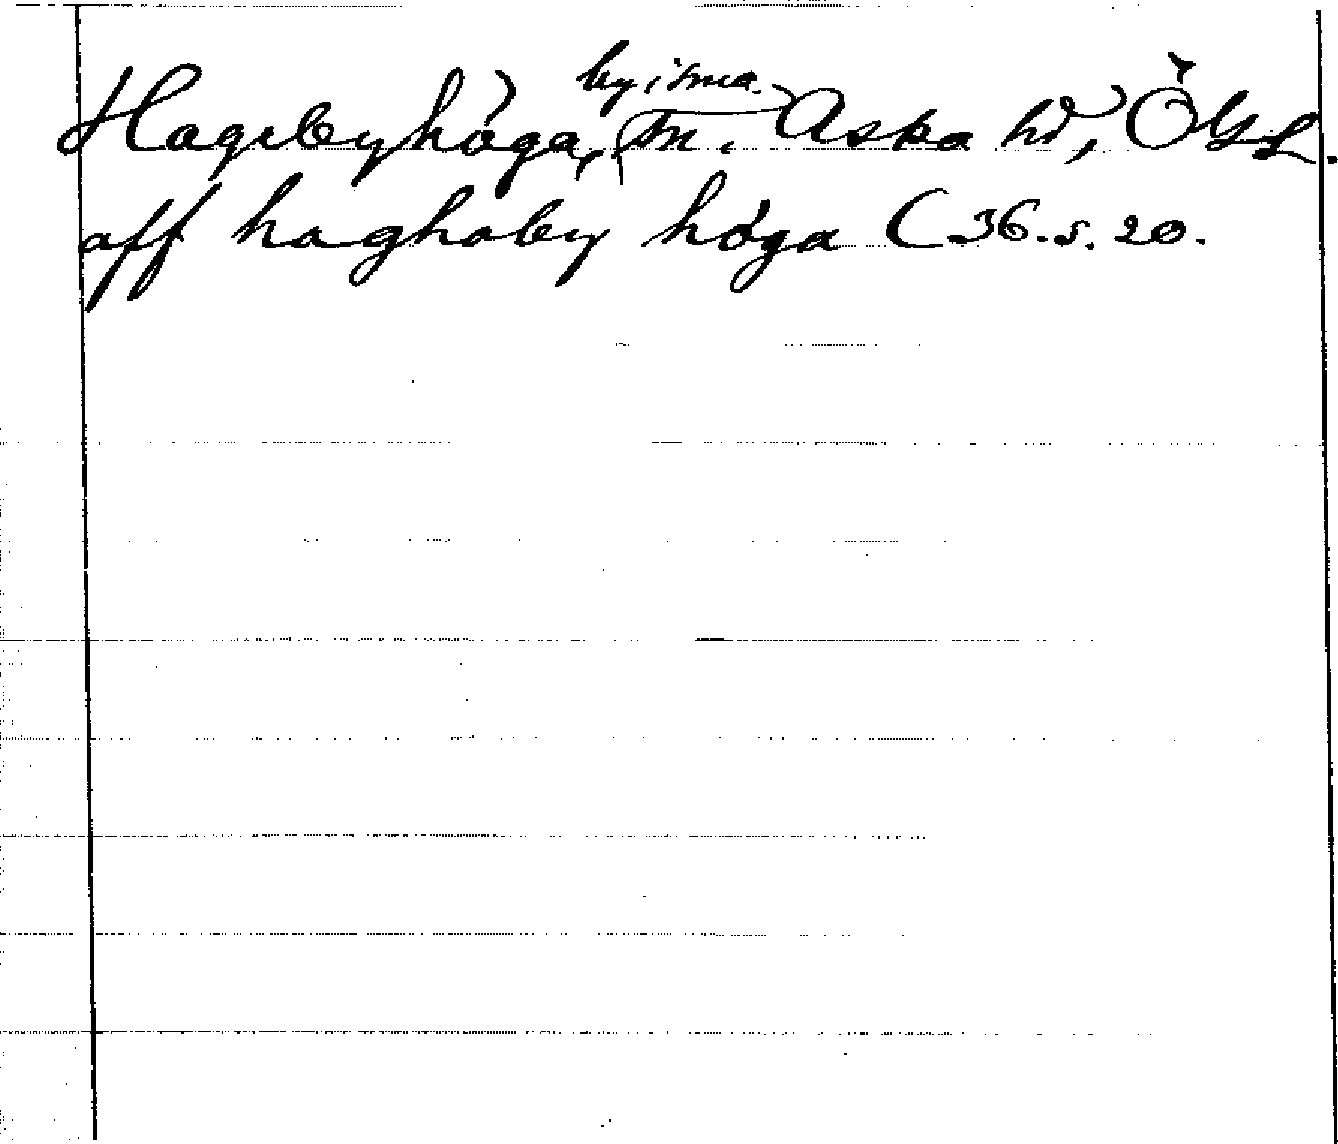 by i sma.
Hagebyhöga, sn. Aska hd, Ögl.
aff haghaby höga (36. s. 20.